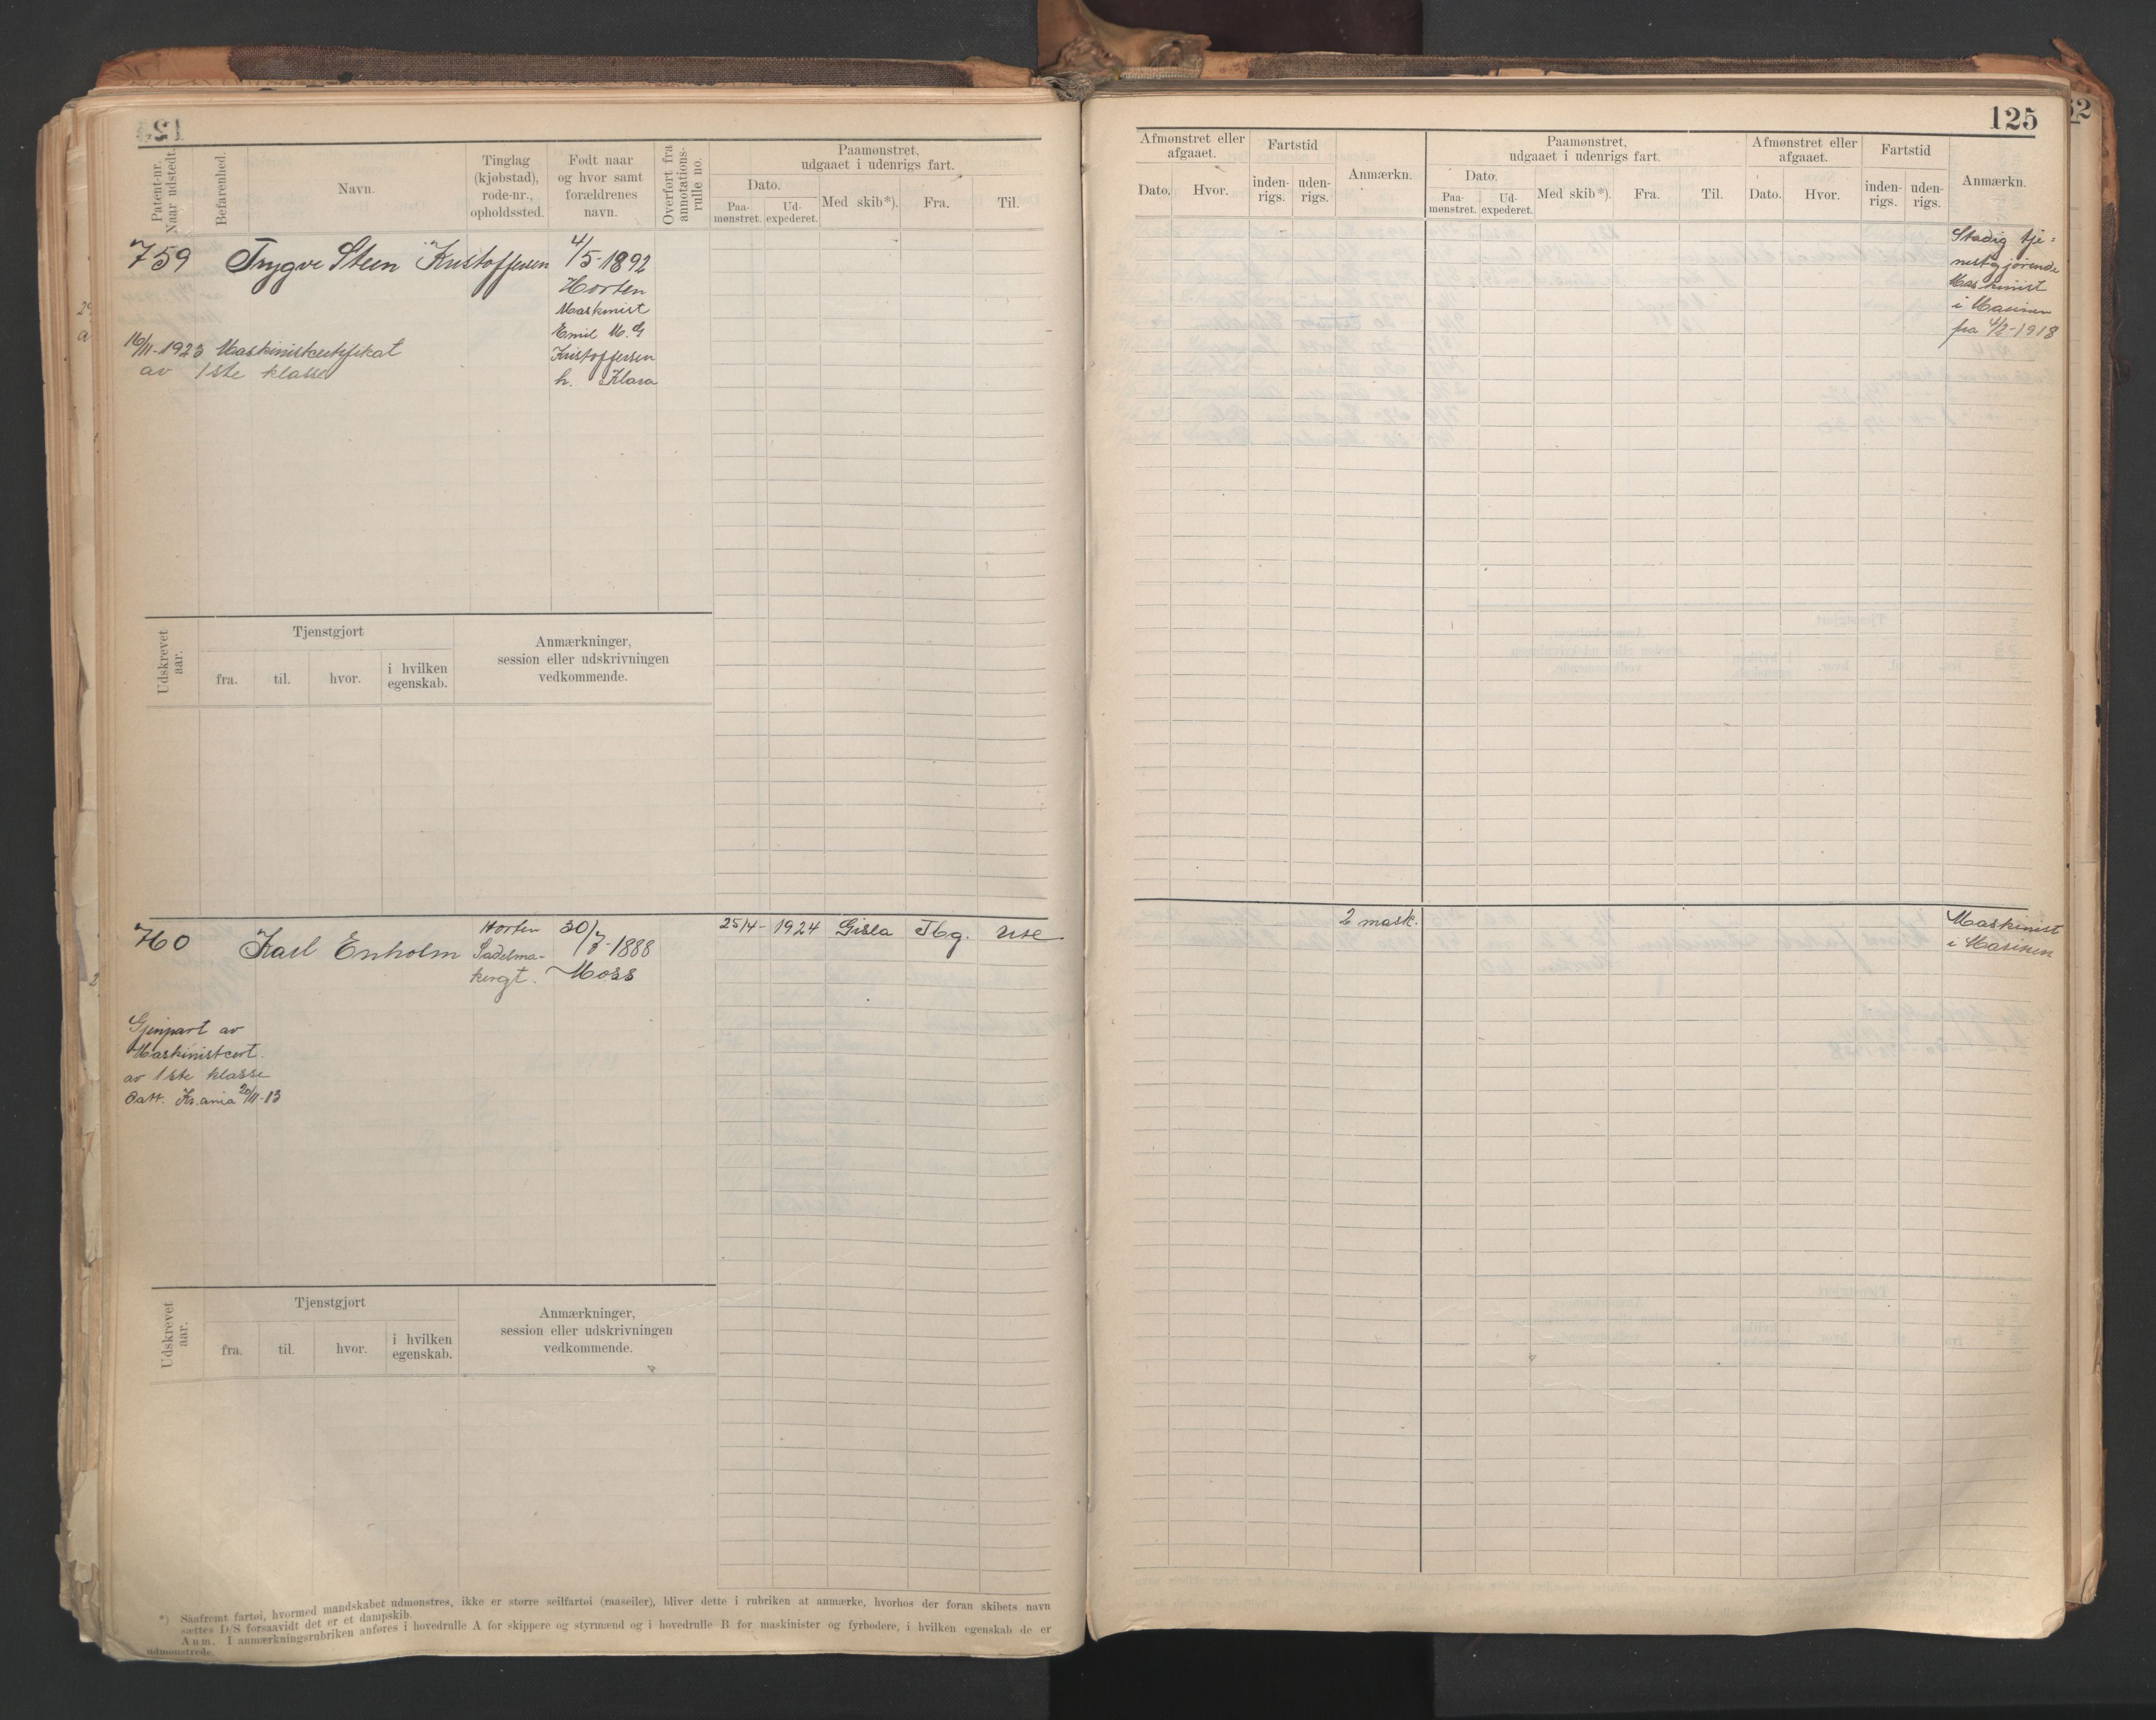 125
Patent-nr.
Naar udstedt.
Befarenhed.
Navn.
Tinglag
(kjøbstad),
rode-nr.,
opholdssted.
Født naar
og hvor samt
forældrenes
navn.
Overført fra
annotations-
rulle no.
Paamønstret,
udgaaet i udenrigs fart.
Dato.
Paa-
mønstret.
Ud-
expederet.
Med skib*).
Fra.
Til.
759
Trygve Steen Kristoffersen
4/5-1892
Horten
Maskinist
Emil M. G
Kristoffersen
h. Klara
16/11-1923 Maskinistcertifikat
av 1ste klasse
Udskrevet
aar.
Tjenstgjort
fra.
til.
hvor.
i hvilken
egenskab.
Anmærkninger,
session eller udskrivningen
vedkommende.
760
Karl Enholm
Horten
Sadelma-
kergt.
30/7-1888
Moss
25/4-1924 Gisla Tbg. Use
Gjenpart av
Maskinistcert.
av 1ste klasse
Datt. Kr.ania 20/11-13
Udskrevet
aar.
Tjenstgjort
fra.
til.
hvor.
i hvilken
egenskab.
Anmærkninger,
session eller udskrivningen
vedkommende.
*) Saafremt fartøi, hvormed mandskabet udmønstres, ikke er større seilfartøi (raaseiler), bliver dette i rubriken at anmærke, hvorhos der foran skibets navn
sættes D/S forsaavidt det er et dampskib.
Anm. I anmærkningsrubriken anføres i hovedrulle A for skippere og styrmænd og i hovedrulle B for maskinister og fyrbødere, i hvilken egenskab de er
udmønstrede.
Afmønstret eller
afgaaet.
Dato.
Hvor.
Fartstid
inden-
rigs.
uden-
rigs.
Anmærkn.
Paamønstret,
udgaaet i udenrigs fart.
Dato.
Paa-
mønstret.
Ud-
expederet.
Med skib*).
Fra.
Til.
Afmønstret eller
afgaaet.
Dato.
Hvor.
Fartstid
inden-
rigs.
uden-
rigs.
Anmærkn.
Stadig tje-
nestgjørende
Maskinist
i Marinen
fra 4/2-1918
2 mask.
Maskinist
i Marinen